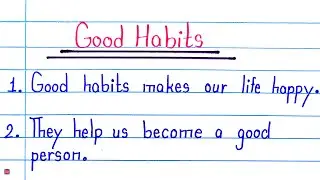 Good Habits
1. Good habits makes our life happy.
2. They help us become a good
person.